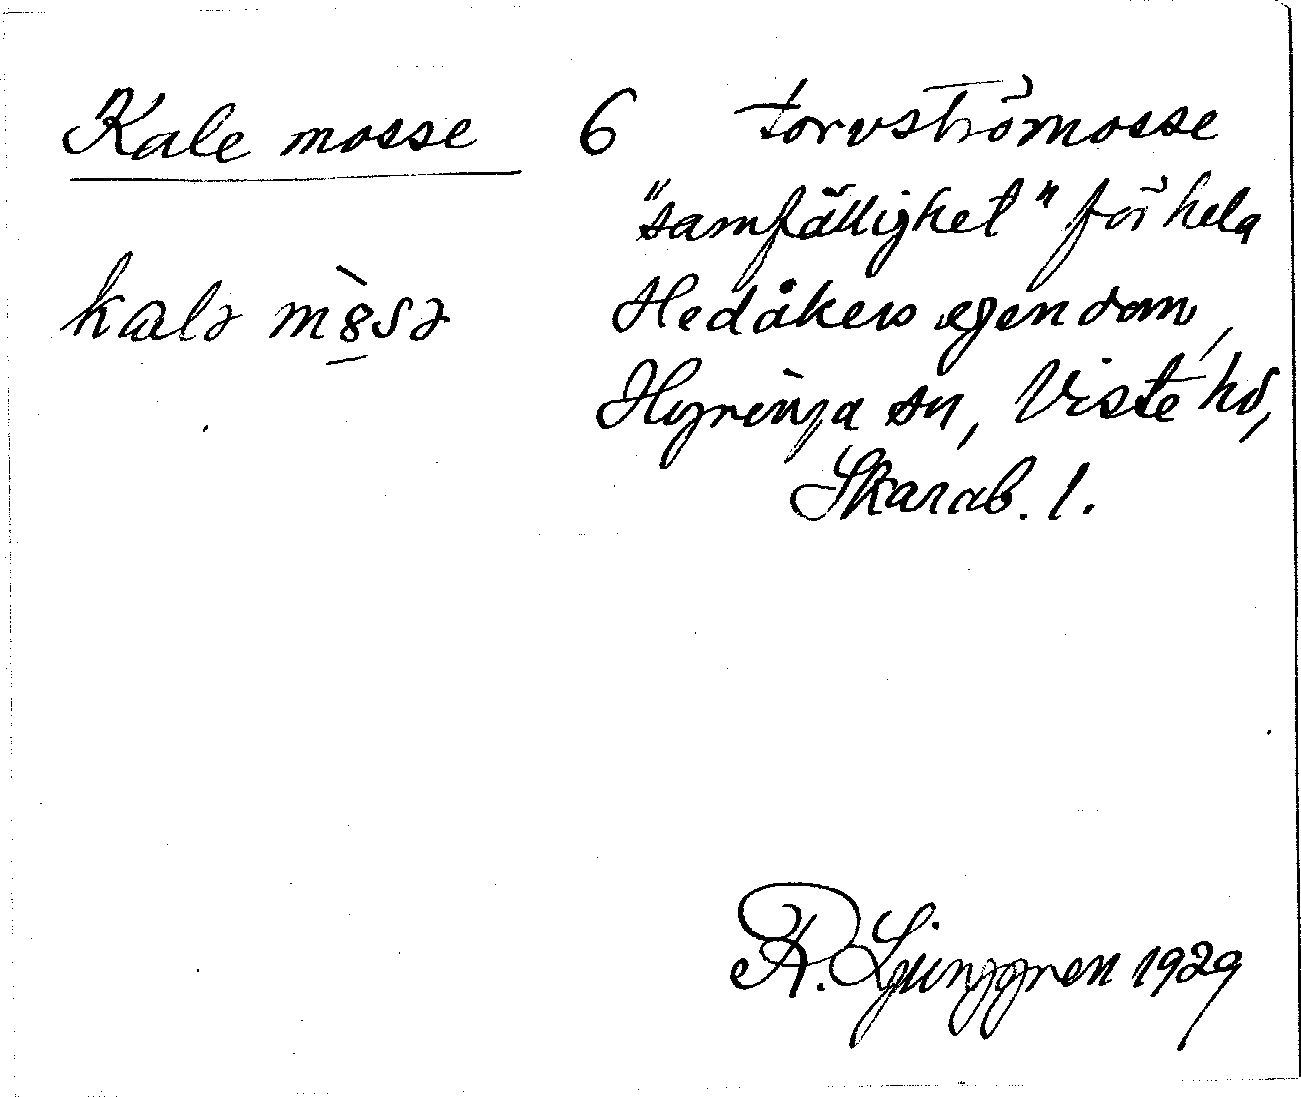 Kale mosse 6 torvströmosse
"samfällighet" för hela
kalə mòsə Hedåkers egendom,
Hyringa sn, Viste hd,
Skarab. l.
R. Ljunggren 1929